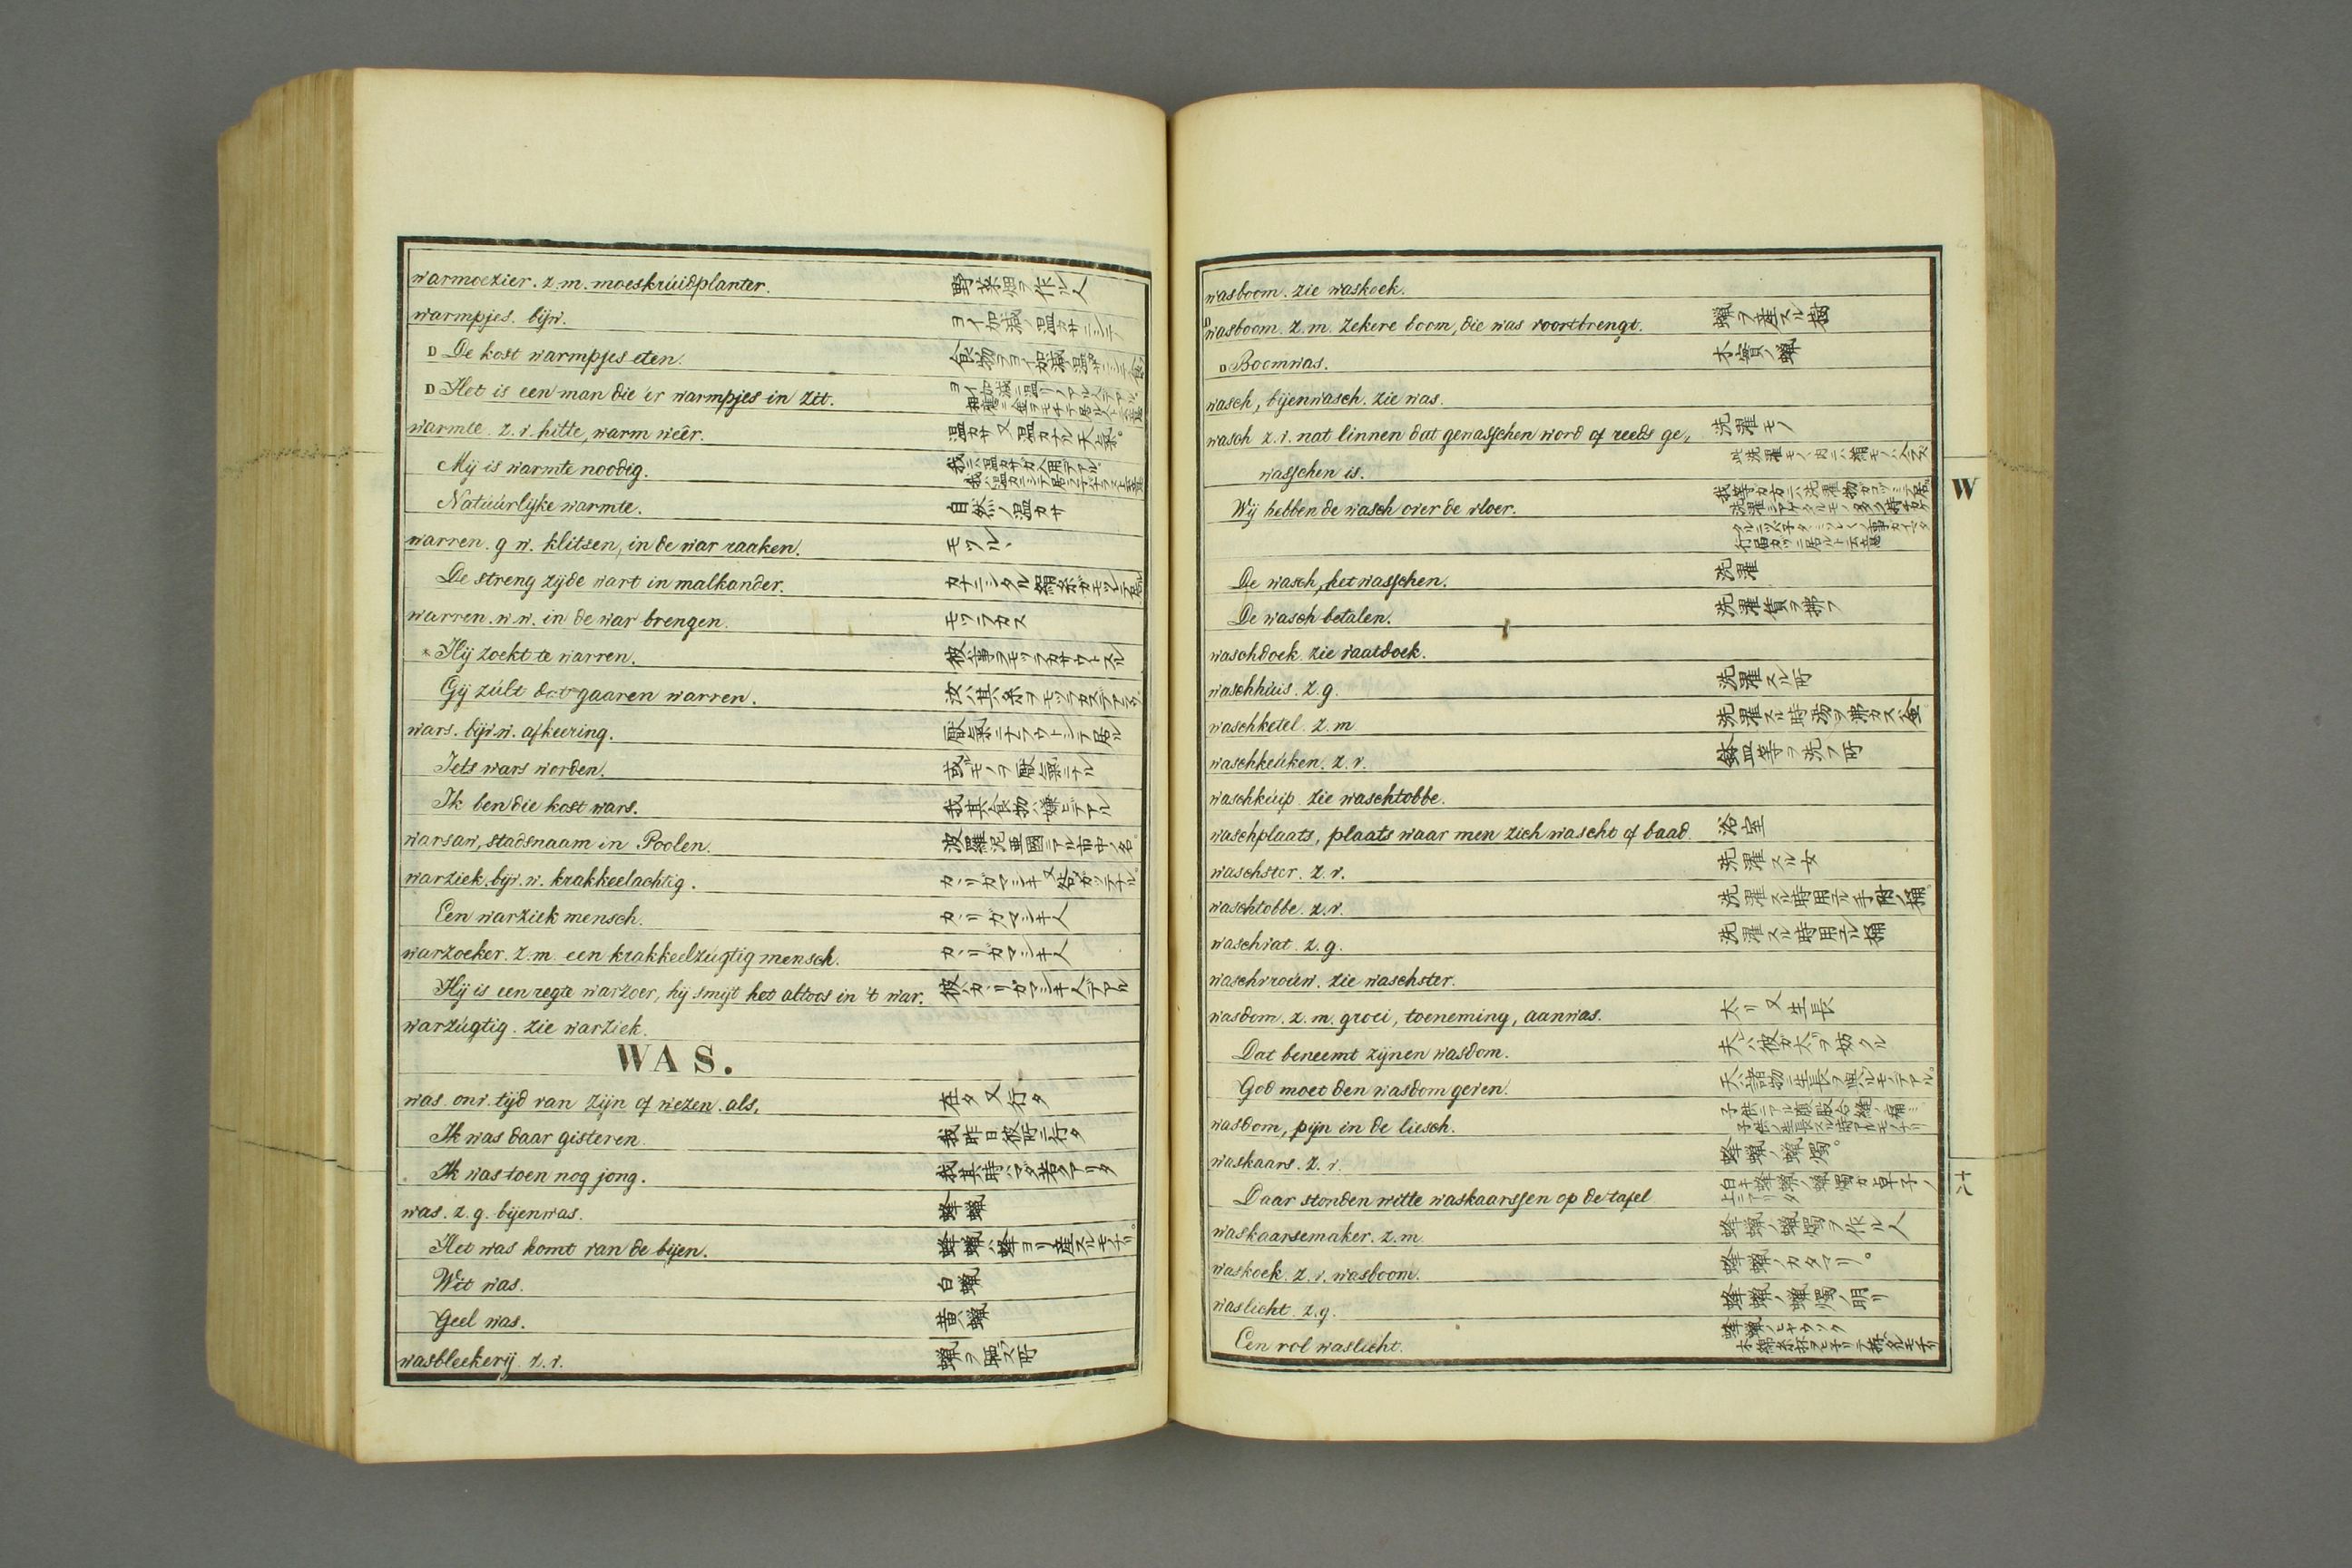 warmoezier. z.m. moeskruidplanter. 野菜畑ヲ作ル人
warmpjes. bijw. ヨイ加減ノ温カサニシテ
D De kost warmpjes eten. 食物ヲヨイ加減温
D Het is een man die 'er warmpjes in zit.
warmte. z.v. hitte, warm wêer. 温カサ又温カナル天氣。
Mij is warmte noodig.
Natuurlijke warmte. 自然ノ温カサ
warren. g.w. klitsen, in de war raaken. モツル、
De streng zijde wart in malkander.
warren. w.w. in de war brengen. モツラカス
* Hij zoekt te warren. 彼ハ事ヲモツラカサウトスル
Gij zult dat gaaren warren. 汝ハ其糸ヲモツラカス
wars. bijv.w. afkeering. 厭氣ニナラウトシテ居ル
Iets wars worden. 或モノヲ厭氣ニナル
Ik ben die kost wars. 我其食物ハ嫌ヒテアル
warsaw, stadsnaam in Poolen.
warziek. bijv.w. krakkeelachtig.
Een warziek mensch. カヽリガマシキ人
warzoeker. z.m. een krakkeelzugtig mensch. カヽリガマシキ人
Hij is een regte warzoer, hij smijt het altoos in 't war. 彼ハカヽリガマシキ人デアル
warzugtig. zie warziek.
WAS.
was. onv. tijd van zijn of wezen. als, 在タ又行タ
Ik was daar gisteren. 我昨日彼所ニ行タ
Ik was toen nog jong. 我其時ハマダ若クアリタ
was. z.g. bijenwas. 蜂蠟
Het was komt van de bijen. 蜂蠟ハ蜂ヨリ産スルモノナリ。
Wit was. 白蠟
Geel was. 黄蠟
wasbleekerij. z.v. 蠟ヲ晒ス所
wasboom. zie waskoek.
D wasboom. z.m. zekere boom, die was voortbrengt. 蠟ヲ産スル樹
D Boomwas. 木實ノ蠟
wasch, bijenwasch. zie was.
wasch z.v. nat linnen dat gewasschen word of reeds ge, 洗濯モノ
wasschen is.
Wij hebben de wasch over de vloer.
De wasch, het wasschen. 洗濯
De wasch betalen. 洗濯賃ヲ拂フ
waschdoek. zie vaatdoek.
waschhuis. z.g. 洗濯スル所
waschketel. z.m 洗濯スル時湯ヲ沸カス釜
waschkeuken. z.v. 鉢皿等ヲ洗フ所
waschkuip. zie waschtobbe.
waschplaats, plaats waar men zich wascht of baad. 浴室
waschster. z.v. 洗濯スル女
waschtobbe. z.v. 洗濯スル時用ル手附ノ桶。
waschvat. z.g. 洗濯スル時用ル桶
waschvrouw. zie waschster.
wasdom. z.m. groei, toeneming, aanwas. 太リ又生長
Dat beneemt zijnen wasdom. 夫ハ彼カ太リヲ妨クル
God moet den wasdom geven. 天ハ諸物ニ生長ヲ與ルモノデアル。
wasdom, pijn in de liesch.
waskaars. z.v. 蜂蠟ノ蠟燭。
Daar stonden witte waskaarssen op de tafel 白キ蜂蠟ノ蠟燭カ卓子ノ上ニアリタ
waskaarsemaker. z.m. 蜂蠟ノ蠟燭ヲ作ル人
waskoek. z.v. wasboom. 蜂蠟ノカタマリ。
waslicht. z.g. 蜂蠟ノ蠟燭ノ明リ
Een rol waslicht.
W
六十